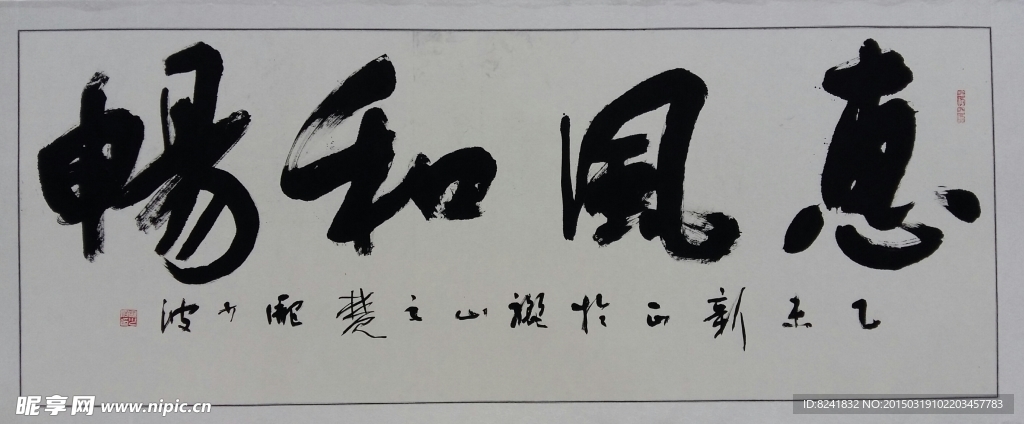 惠風和暢
乙未新正於礙山之麓龐少波
昵享网 www.nipic.cn
ID:8241832 NO:20150319102203457783